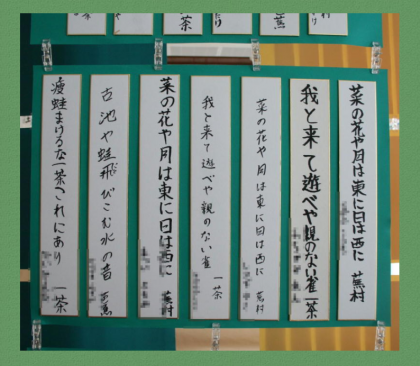 菜の花や月は東に日は西に 蕪村
我と来て遊べや親のない雀 一茶
菜の花や月は東に日は西に 蕪村
我と来て遊べや親のない雀 一茶
菜の花や月は東に日は西に 蕪村
古池や蛙飛びこむ水の音 芭蕉
痩蛙まけるな一茶これにあり 一茶